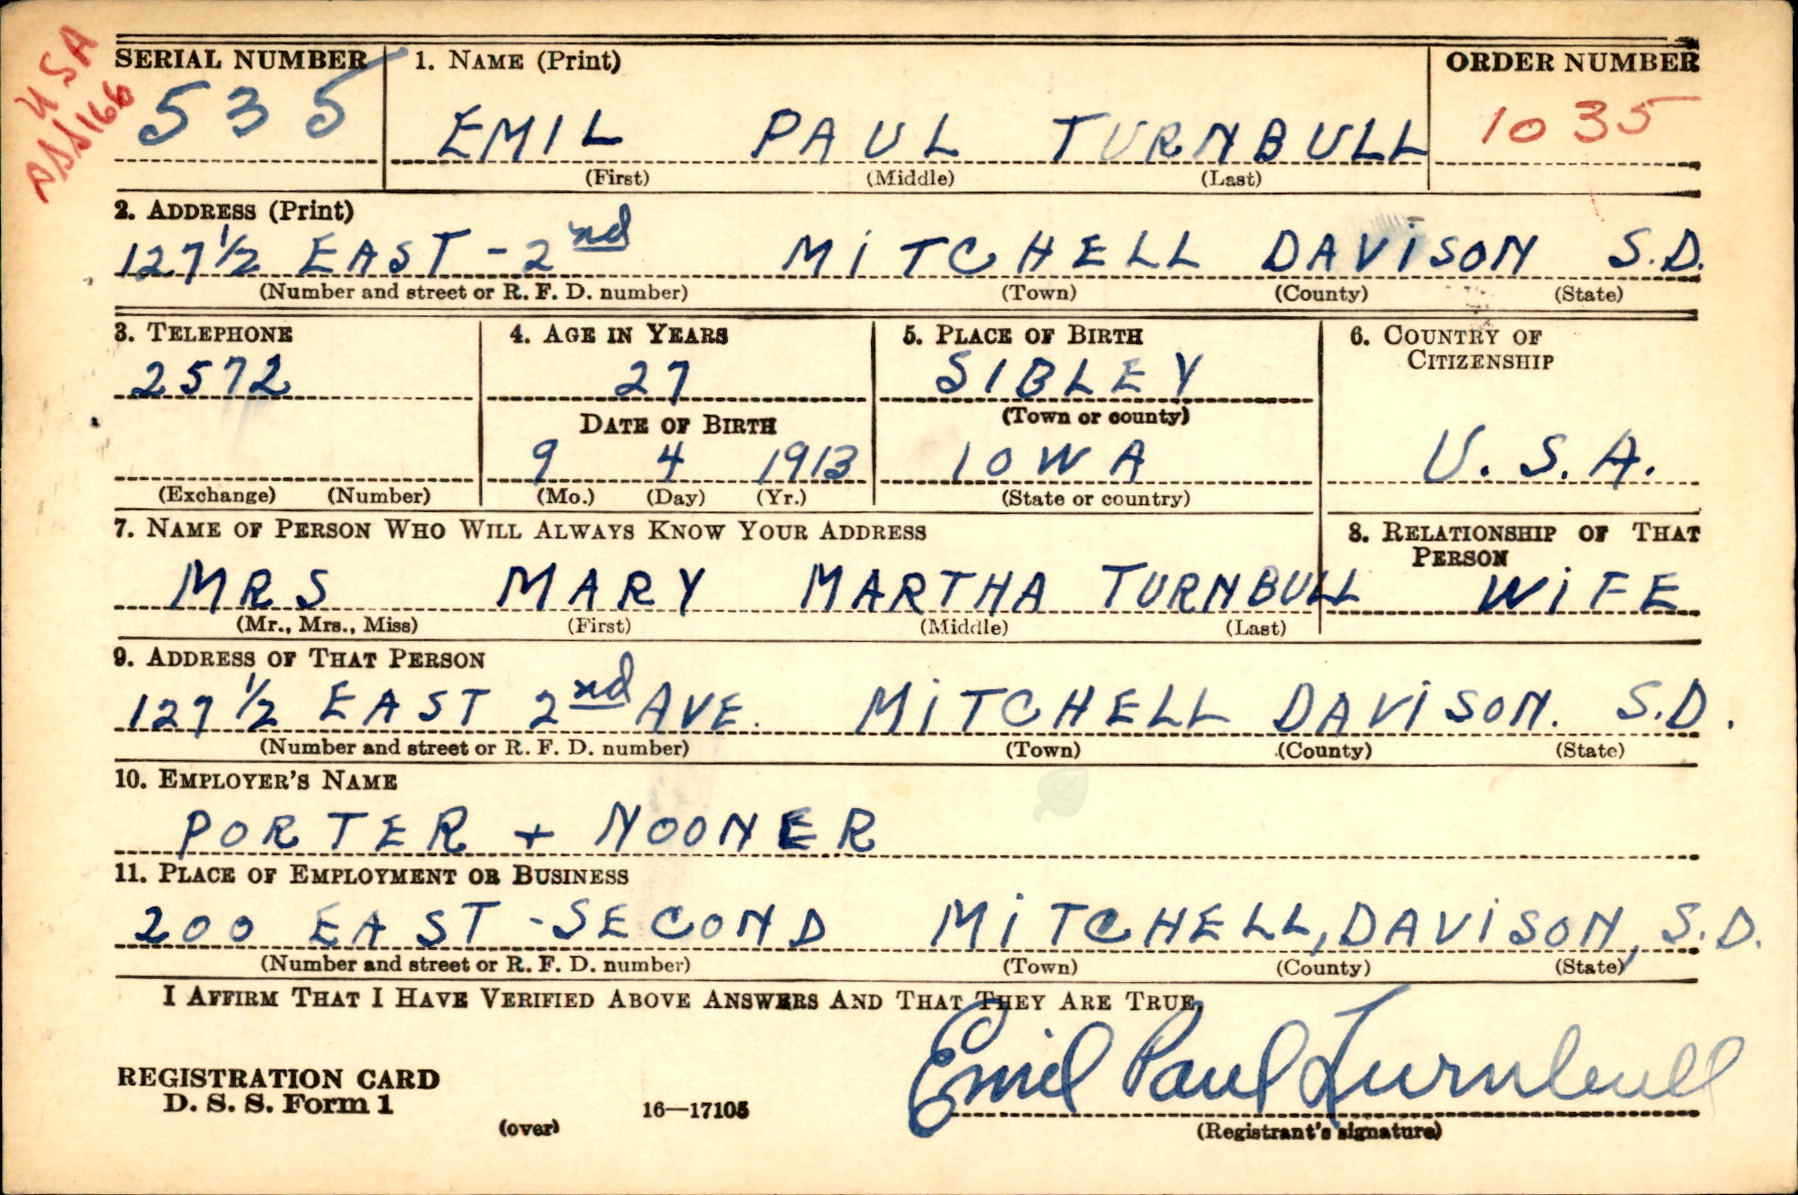 USA
DSS 166
SERIAL NUMBER 1. NAME (Print) ORDER NUMBER
535 EMIL PAUL TURNBULL 1035
(First) (Middle) (Last)
2. ADDRESS (Print)
127 1/2 EAST - 2nd MITCHELL DAVISON S.D.
(Number and street or R. F. D. number) (Town) (County) (State)
3. TELEPHONE 4. AGE IN YEARS 5. PLACE OF BIRTH 6. COUNTRY OF
CITIZENSHIP
2572 27 SIBLEY
DATE OF BIRTH (Town or county)
9 4 1913 IOWA U.S.A.
(Exchange) (Number) (Mo.) (Day) (Yr.) (State or country)
7. NAME OF PERSON WHO WILL ALWAYS KNOW YOUR ADDRESS 8. RELATIONSHIP OF THAT
PERSON
MRS MARY MARTHA TURNBULL WIFE
(Mr., Mrs., Miss) (First) (Middle) (Last)
9. ADDRESS OF THAT PERSON
127 1/2 EAST 2nd AVE. MITCHELL DAVISON. S.D.
(Number and street or R. F. D. number) (Town) (County) (State)
10. EMPLOYER'S NAME
PORTER + NOONER
11. PLACE OF EMPLOYMENT OR BUSINESS
200 EAST - SECOND MITCHELL, DAVISON, S.D.
(Number and street or R. F. D. number) (Town) (County) (State)
I AFFIRM THAT I HAVE VERIFIED ABOVE ANSWERS AND THAT THEY ARE TRUE.
Emil Paul Turnbull
REGISTRATION CARD
D. S. S. Form 1
(over) 16—17105 (Registrant's signature)